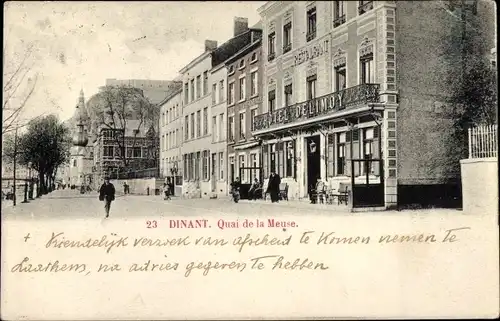 RESTAURANT
HOTEL DELIMOY
23 DINANT. Quai de la Meuse.
+ Vriendelijk verzoek van afscheid te komen nemen te
Laarhems, na adries gegeven te hebben